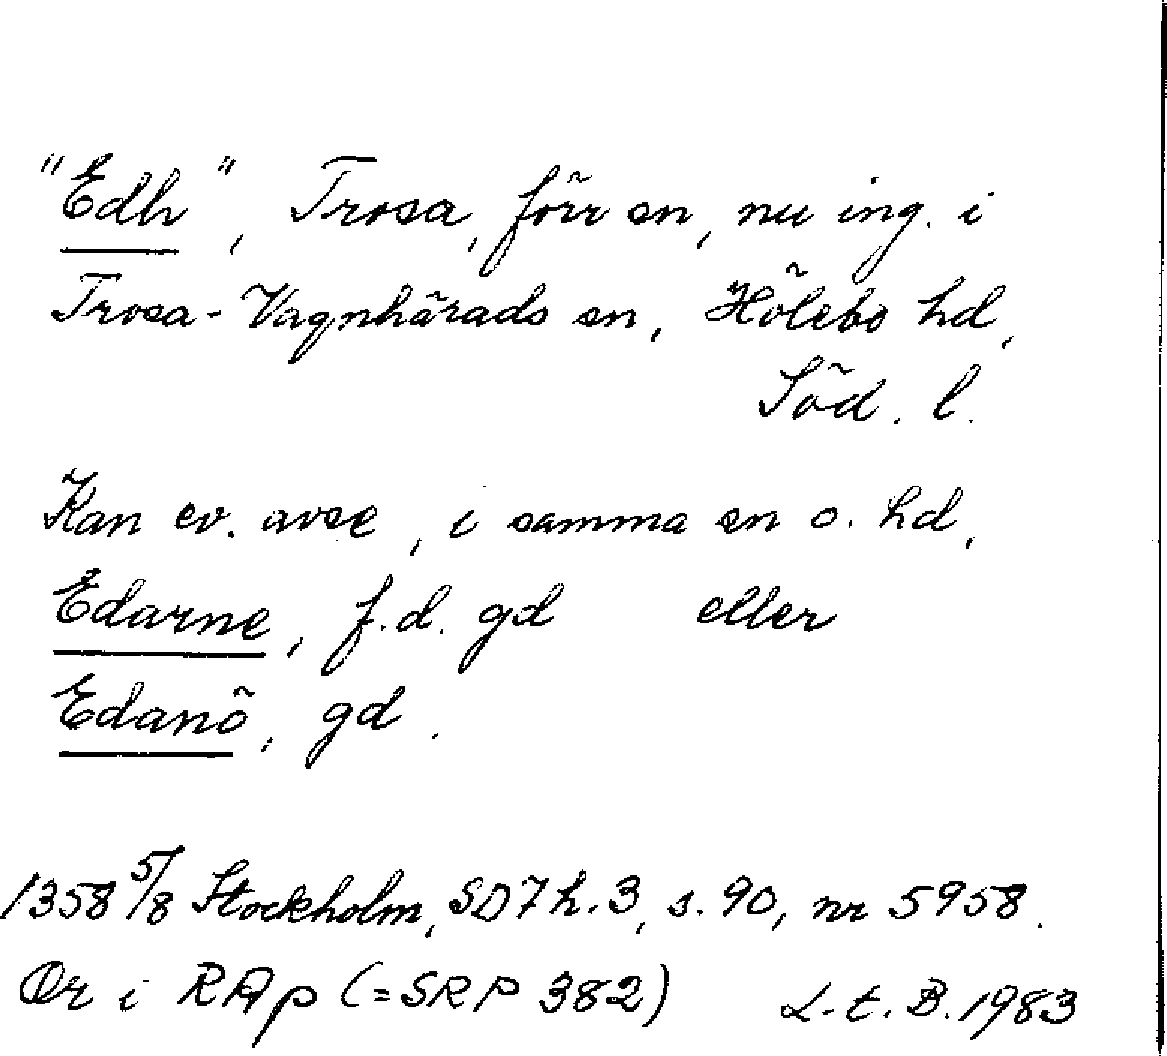 "Edh", Trosa, förr sn, nu ing. i
Trosa-Vagnhärads sn, Hölebo hd,
Söd. l.
Kan ev. avse, i samma sn o. hd,
Edarne, f.d. gd eller
Edanö, gd.
1358 5/8 Stockholm, SD 7 h. 3, s. 90, nr 5958.
Or i RAp (=SRP 382) L.t.B. 1983